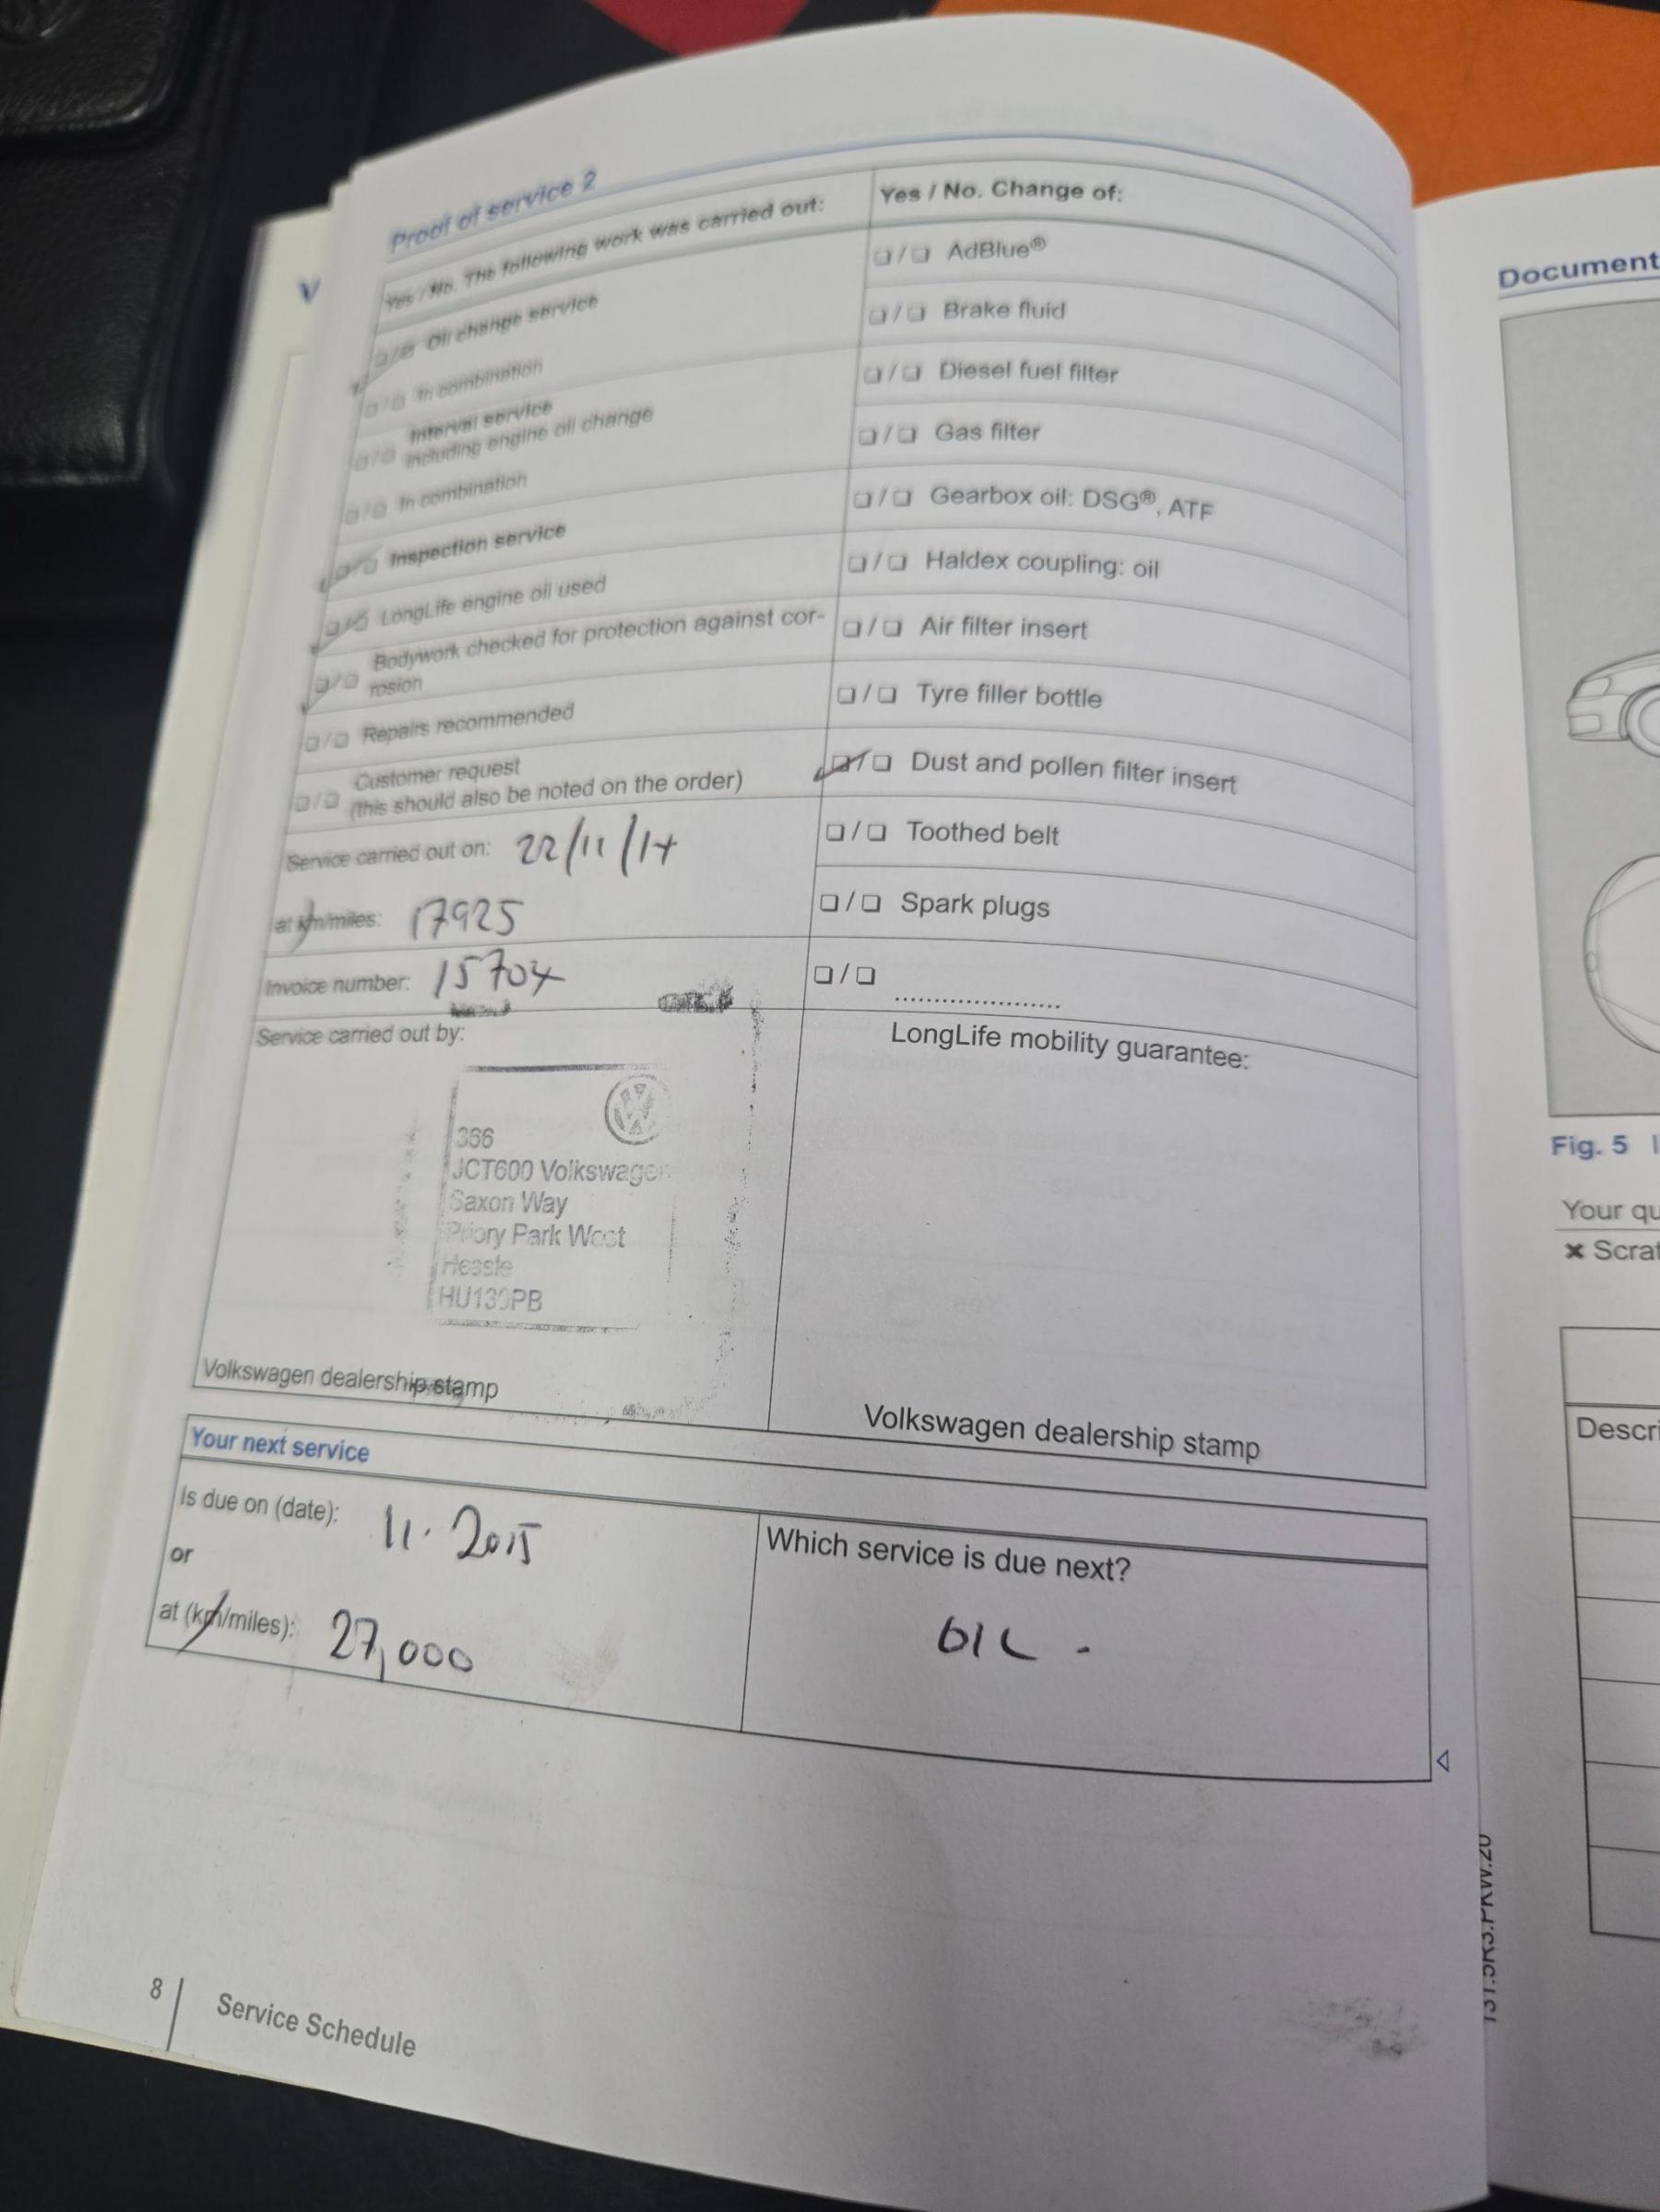 Proof of service 2
Yes / No. The following work was carried out:
❏/❏ Oil change service
❏/❏ In combination
❏/❏ Interval service
including engine oil change
❏/❏ In combination
❏/❏ Inspection service
❏/❏ LongLife engine oil used
❏/❏ Bodywork checked for protection against cor-
rosion
❏/❏ Repairs recommended
❏/❏ Customer request
(this should also be noted on the order)
Service carried out on: 22/11/14
at km/miles: 17925
Invoice number: 15704
Service carried out by:
366
JCT600 Volkswagen
Saxon Way
Priory Park West
Hessle
HU130PB
Volkswagen dealership stamp
Yes / No. Change of:
❏/❏ AdBlue®
❏/❏ Brake fluid
❏/❏ Diesel fuel filter
❏/❏ Gas filter
❏/❏ Gearbox oil: DSG®, ATF
❏/❏ Haldex coupling: oil
❏/❏ Air filter insert
❏/❏ Tyre filler bottle
❏/❏ Dust and pollen filter insert
❏/❏ Toothed belt
❏/❏ Spark plugs
❏/❏ ....................
LongLife mobility guarantee:
Volkswagen dealership stamp
Your next service
Is due on (date): 11. 2015
or
at (km/miles): 27,000
Which service is due next?
OIL .
8 | Service Schedule
V
Document
Fig. 5
Your qu
× Scrat
Descri